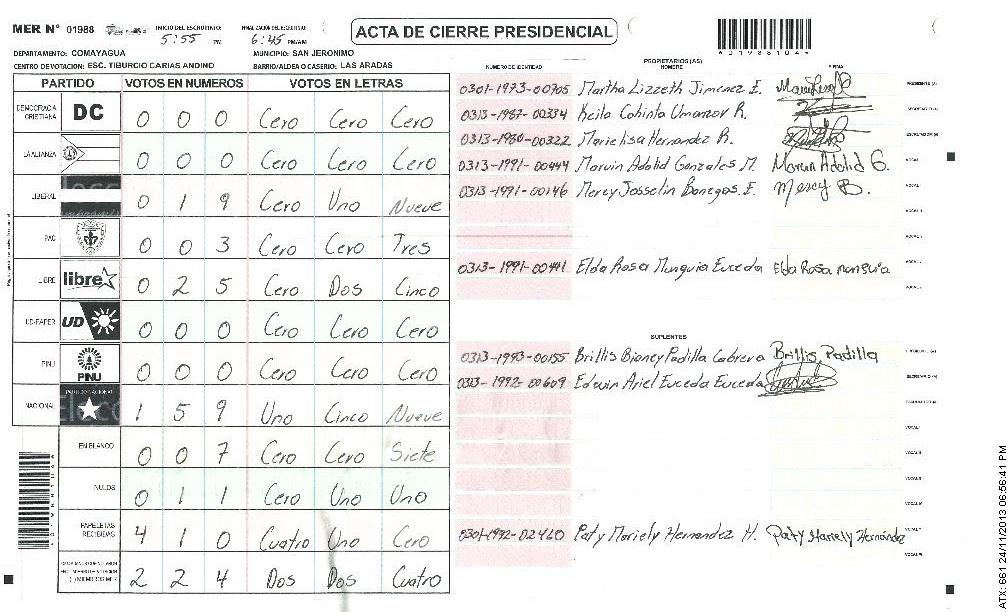 MER Nº 01988
INICIO DEL ESCRUTINIO: 5:55 PM
FINALIZACIÓN DEL ESCRUTINIO: 6:45 PM/AM
ACTA DE CIERRE PRESIDENCIAL
DEPARTAMENTO: COMAYAGUA
MUNICIPIO: SAN JERONIMO
CENTRO DE VOTACION: ESC. TIBURCIO CARIAS ANDINO
BARRIO/ALDEA O CASERIO: LAS ARADAS
PARTIDO VOTOS EN NUMEROS VOTOS EN LETRAS
DEMOCRACIA CRISTIANA DC 0 0 0 Cero Cero Cero
LA ALIANZA 0 0 0 Cero Cero Cero
LIBERAL 0 1 9 Cero Uno Nueve
PAC 0 0 3 Cero Cero Tres
LIBRE libre 0 2 5 Cero Dos Cinco
UD-FAPER UD 0 0 0 Cero Cero Cero
PINU PINU 0 0 0 Cero Cero Cero
NACIONAL 1 5 9 Uno Cinco Nueve
EN BLANCO 0 0 7 Cero Cero Siete
NULOS 0 1 1 Cero Uno Uno
PAPELETAS RECIBIDAS 4 1 0 Cuatro Uno Cero
2 2 4 Dos Dos Cuatro
PROPIETARIOS (AS)
NUMERO DE IDENTIDAD NOMBRE FIRMA
0301-1973-00705 Martha Lizzeth Jimenez E.
0313-1987-00334 Keila Cohinta Umanzor R.
0313-1980-00322 Marielisa Hernandez R.
0313-1991-00444 Marvin Adolid Gonzales M. Marvin Adolid G.
0313-1991-00146 Mercy Josselin Banegas. E. Mercy B.
0313-1991-00441 Elda Rosa Munguia Euceda Elda Rosa munguia
SUPLENTES
0313-1993-00155 Brillis Bianey Padilla Cabrera Brillis Padilla
0313-1992-00609 Edwin Ariel Euceda Euceda
0301-1992-02460 Paty Mariely Hernandez H. Paty Mariely Hernández
ATX: 661 24/11/2013 06:56:41 PM